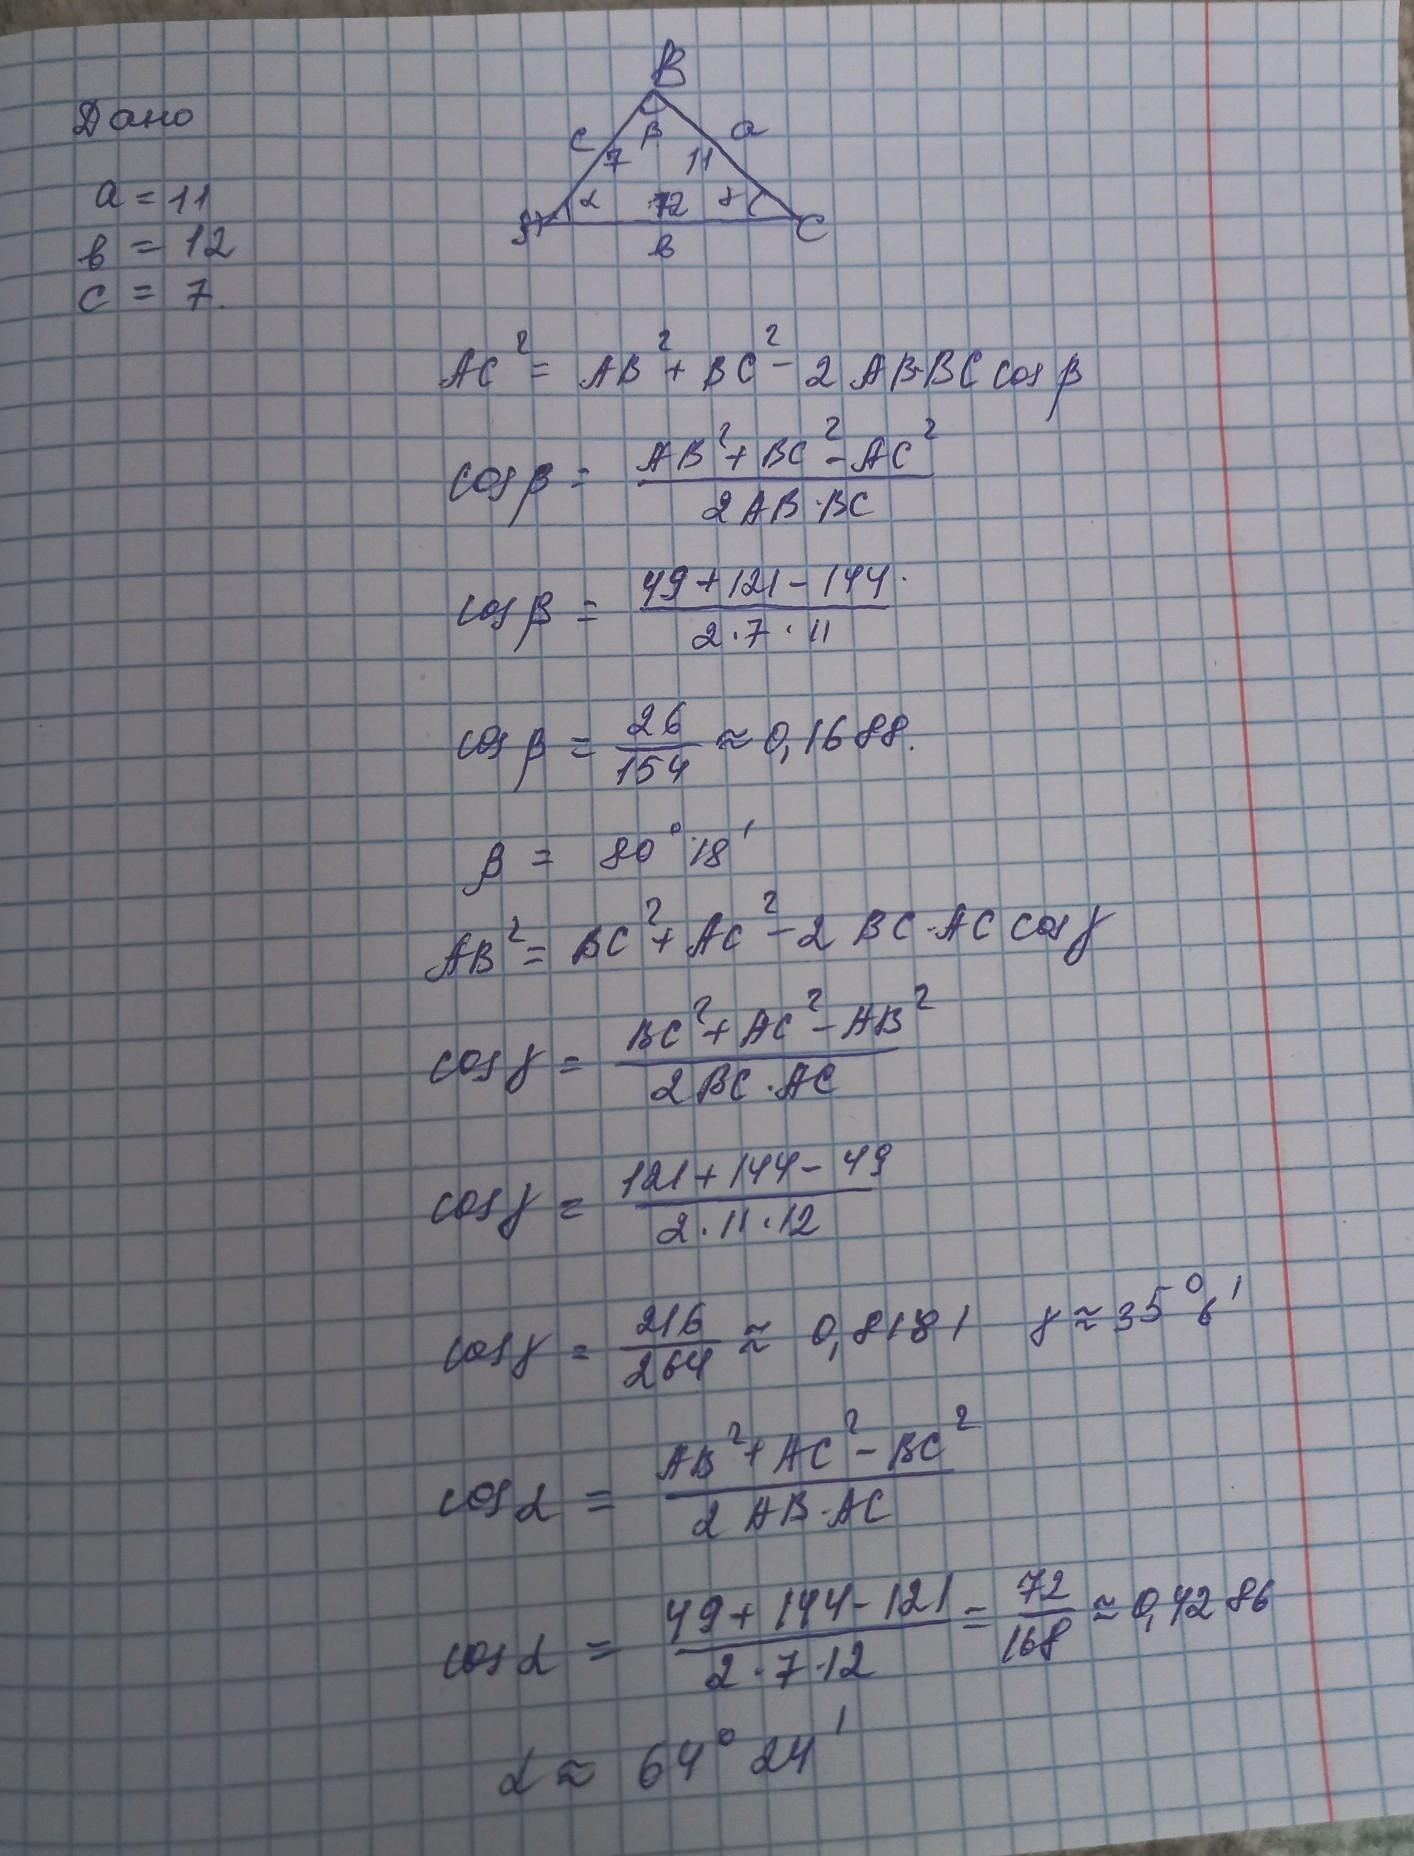 Дано
a = 11
в = 12
c = 7.
B
c β a
7 11
A α 12 γ C
в
AC² = AB² + BC² - 2 AB·BC cos β
cos β = (AB² + BC² - AC²) / (2 AB·BC)
cos β = (49 + 121 - 144) / (2·7·11)
cos β = 26/154 ≈ 0,1688.
β = 80° 18'
AB² = BC² + AC² - 2 BC·AC cos γ
cos γ = (BC² + AC² - AB²) / (2 BC·AC)
cos γ = (121 + 144 - 49) / (2·11·12)
cos γ = 216/264 ≈ 0,8181 γ ≈ 35° 6'
cos α = (AB² + AC² - BC²) / (2 AB·AC)
cos α = (49 + 144 - 121) / (2·7·12) = 72/168 ≈ 0,4286
α ≈ 64° 24'